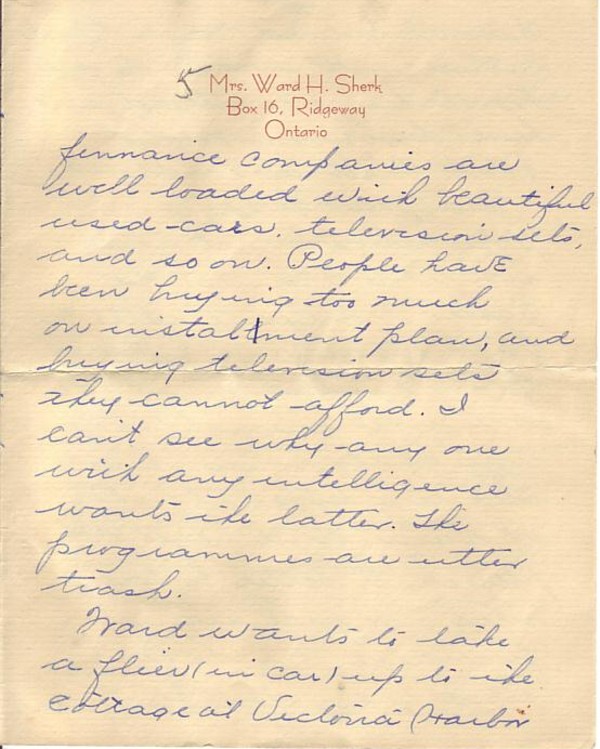 5 Mrs. Ward H. Sherk
Box 16, Ridgeway
Ontario
finnance companies are
well loaded with beautiful
used-cars, television sets,
and so on. People have
been buying too much
on installment plan, and
buying television sets
they cannot afford. I
can't see why any one
with any intelligence
wants the latter. The
programmes are utter
trash.
Ward wants to take
a flier (in car) up to the
Cottage at Victoria Harbor